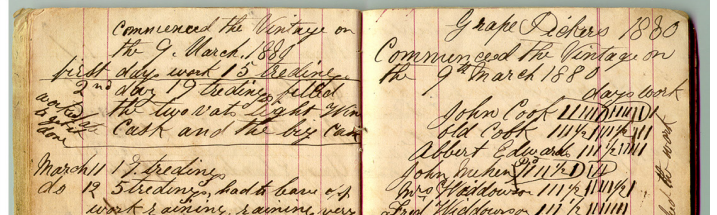 commenced the Vintage on
the 9. March 1880
first days work 15 tredings
2nd day 19 tredings filled
the two vats Light Wine
Cask and the big Cask
done
March 11 17 tredings
do 12 5 tredings, had to leave off
work raining, raining very
Grape Pickers 1880
Commenced the Vintage on
the 9th March 1880
days work
John Cook
Old Cook
Albert Edwards
John
Mrs Widdowson
Fred Widdowson
the work